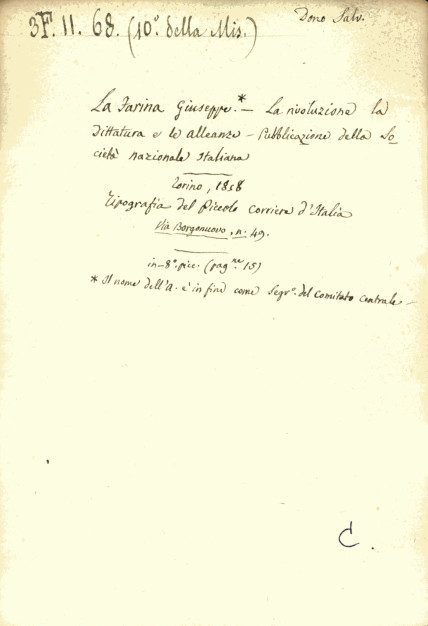 3F. 11. 68. (10º della Mis.)
Dono Salv.
La Farina Giuseppe.* — La rivoluzione la
dittatura e le alleanze — Pubblicazione della So
cietà nazionale Italiana
Torino, 1858
Tipografia del Piccolo Corriere d'Italia
Via Borgonuovo, n. 49.
in-8º. picc. (pag.ne 15)
* Il nome dell'A. è in fine come Segr.º del Comitato Centrale —
C.